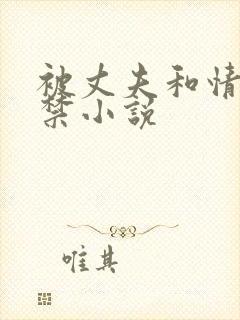 被丈夫和情
禁小说
唯其